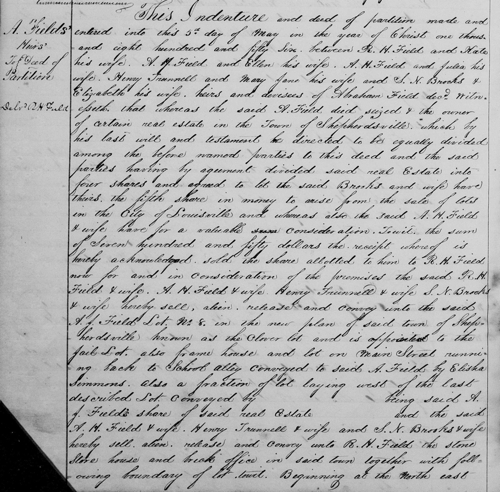 A. Fields
Heirs
To Deed of
Partition
Deld R H Field
This Indenture and deed of partition made and
entered into this 5th day of May in the year of Christ one thous
and eight hundred and fifty Six. between R. H. Field and Kate
his wife. A. H. Field and Ellen his wife. A. H. Field and Julia his
wife. Henry Trunnell and Mary Jane his wife and S. N. Brooks &
Elizabeth his wife. heirs and devisees of Abraham Field decd. Witn-
esseth that whereas the said A. Field died seized & the owner
of certain real estate in the Town of Shepherdsville. which by
his last will and testament he directed to be equally divided
among the before named parties to this deed and the said
parties having by agument divided said real Estate into
four shares and agread to let the said Brooks and wife have
theirs, the fifth share in money to arise from the sale of lots
in the City of Louisville and whereas also the said A. H. Field
& wife have for a valuable consideration. Towit. the sum
of Seven hundred and fifty dollars the receipt whereof is
hereby acknowledged. sold the share allotted to him to R. H. Field
now for and in consideration of the premises the said R. H
Field & wife. A. H. Field & wife Henry Trunnell & wife S. N. Brooks
& wife hereby sell, alien. release and Convey unto the said
A. J. Field Lot. No 8. in the new plan of said town of Shep-
herdsville known as the Clover lot and is opposited to the
Jail Lot. also frame house and lot on Main Street runn-
ing back to School alley Conveyed to said A. Field by Elisha
Simmons. also a fraction of lot laying west of the last
described Lot Conveyed by being said A.
J. Field's share of said real Estate and the said
A. H. Field & wife. Henry Trunnell & wife and S. N. Brooks & wife
hereby sell. alien. release and Convey unto R. H. Field the Stone
Store house and brick office in said town together with foll-
owing boundary of lot towit. Beginning at the North east